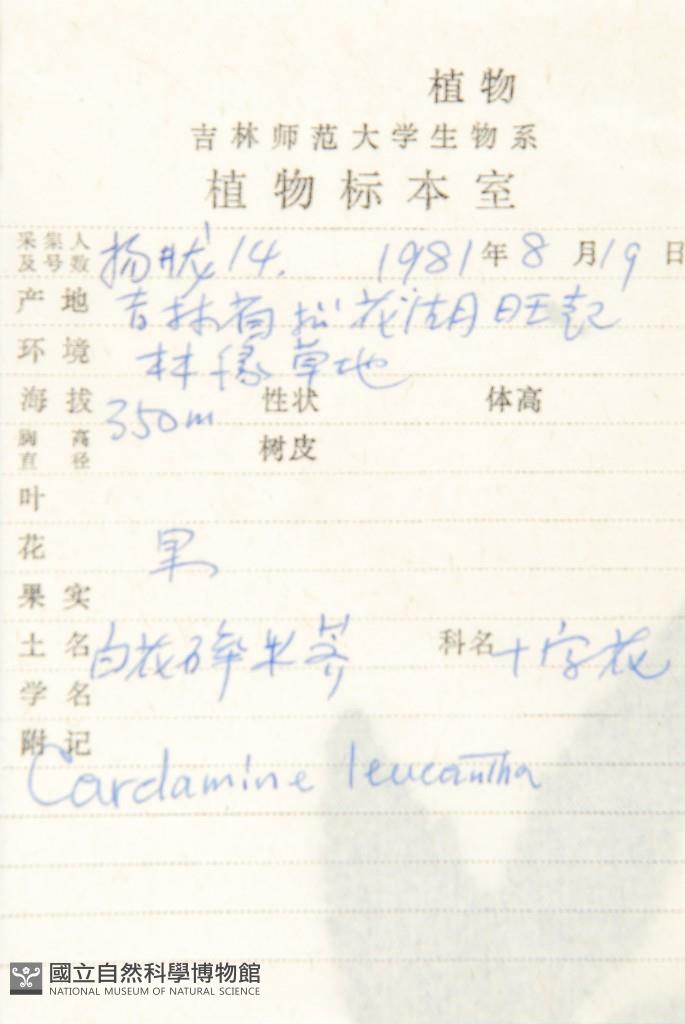 植物
吉林师范大学生物系
植物标本室
采集人及号数 杨 14. 1981年8月19日
产地 吉林省松花湖旺起
环境 林缘草地
海拔 350m 性状 体高
胸高直径 树皮
叶
花 果
果实
土名 白花碎米荠 科名 十字花
学名
附记
Cardamine leucantha
國立自然科學博物館
NATIONAL MUSEUM OF NATURAL SCIENCE